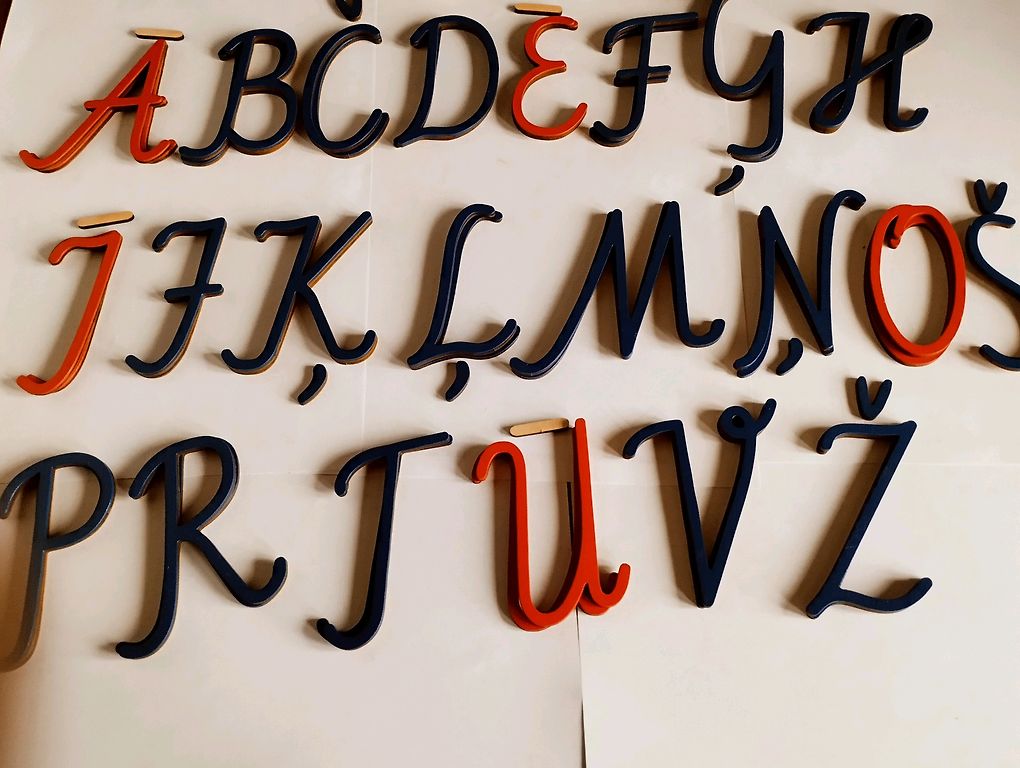 Ā B Č D Ē F Ģ H
Ī J Ķ Ļ M Ņ O Š
P R T Ū V Ž